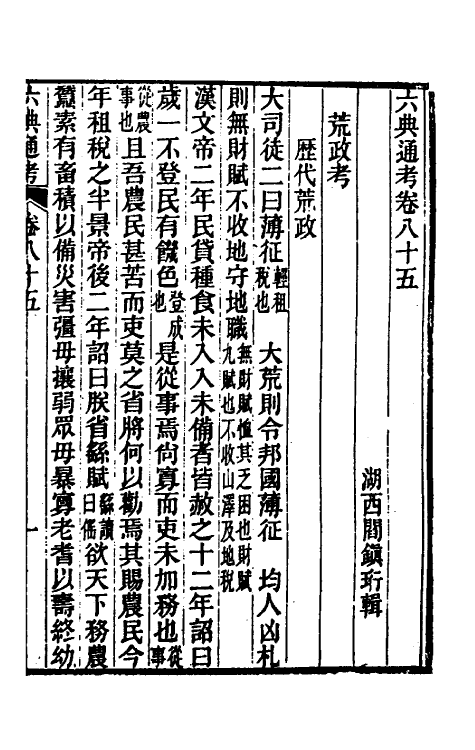 六典通考卷八十五
湖西閻鎮珩輯
荒政考
歷代荒政
大司徒二曰薄征輕租稅也　大荒則令邦國薄征　均人凶札
則無財賦不收地守地職無財賦恤其乏困也財賦九賦也不收山澤及地稅
漢文帝二年民貸種食未入入未備者皆赦之十二年詔曰
歲一不登民有饑色登成也是從事焉尚寡而吏未加務也從事
從農事也且吾農民甚苦而吏莫之省將何以勸焉其賜農民今
年租稅之半景帝後二年詔曰朕省繇賦繇讀曰傜欲天下務農
蠶素有畜積以備災害彊毋攘弱眾毋暴寡老耆以壽終幼
六典通考　卷八十五　一